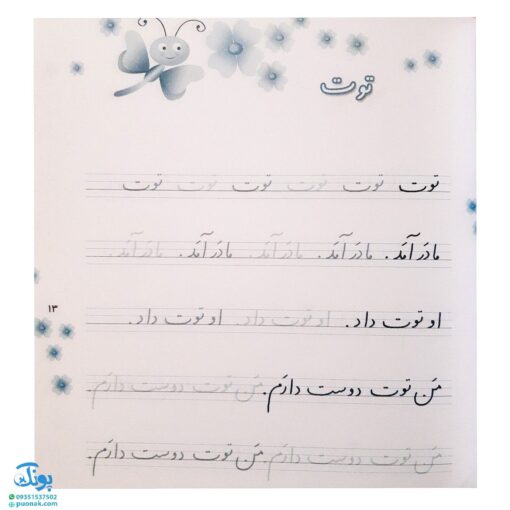 توت
توت توت توت توت توت توت
مادَر آمَد. مادَر آمَد. مادَر آمَد. مادَر آمَد. مادَر آمَد.
او توت داد. او توت داد. او توت داد.
۱۳
مَن توت دوست دارَم. مَن توت دوست دارَم.
مَن توت دوست دارَم. مَن توت دوست دارَم.
پونک
09351537502
puonak.com